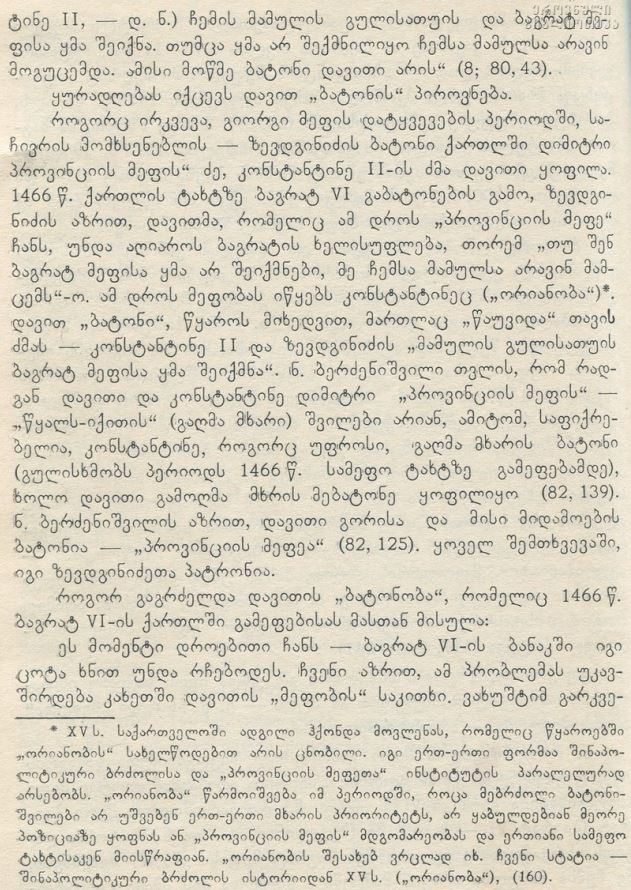 ეროვნული
ბიბლიოთეკა
ტინე II, — დ. ნ.) ჩემის მამულის გულისათჳის და ბაგრატ მე-
ფისა ყმა შეიქნა. თუმცა ყმა არ შექმნილიყო ჩემსა მამულსა არავინ
მოგუცემდა. ამისი მოწმე ბატონი დავითი არის“ (8; 80, 43).
ყურადღებას იქცევს დავით „ბატონის“ პიროვნება.
როგორც ირკვევა, გიორგი მეფის დატყვევების პერიოდში, სა-
ჩივრის მომხსენებლის — ზევდგინიძის ბატონი ქართლში დიმიტრი
პროვინციის მეფის“ ძე, კონსტანტინე II-ის ძმა დავითი ყოფილა.
1466 წ. ქართლის ტახტზე ბაგრატ VI გაბატონების გამო, ზევდგი-
ნიძის აზრით, დავითმა, რომელიც ამ დროს „პროვინციის მეფე“
ჩანს, უნდა აღიაროს ბაგრატის ხელისუფლება, თორემ „თუ შენ
ბაგრატ მეფისა ყმა არ შეიქმნები, მე ჩემსა მამულსა არავინ მამ-
ცემს“-ო. ამ დროს მეფობას იწყებს კონსტანტინეც („ორიანობა“)*.
დავით „ბატონი“, წყაროს მიხედვით, მართლაც „წაუვიდა“ თავის
ძმას — კონსტანტინე II და ზევდგინიძის „მამულის გულისათჳის
ბაგრატ მეფისა ყმა შეიქმნა“. ნ. ბერძენიშვილი თვლის, რომ რად-
გან დავითი და კონსტანტინე დიმიტრი „პროვინციის მეფის“ —
„წყალს-იქითის“ (გაღმა მხარი) შვილები არიან, ამიტომ, საფიქრე-
ბელია, კონსტანტინე, როგორც უფროსი, გაღმა მხარის ბატონი
(გულისხმობს პერიოდს 1466 წ. სამეფო ტახტზე გამეფებამდე),
ხოლო დავითი გამოღმა მხრის მებატონე ყოფილიყო (82, 139).
ნ. ბერძენიშვილის აზრით, დავითი გორისა და მისი მიდამოების
ბატონია — „პროვინციის მეფეა“ (82, 125). ყოველ შემთხვევაში,
იგი ზევდგინიძეთა პატრონია.
როგორ გაგრძელდა დავითის „ბატონობა“, რომელიც 1466 წ.
ბაგრატ VI-ის ქართლში გამეფებისას მასთან მისულა:
ეს მომენტი დროებითი ჩანს — ბაგრატ VI-ის ბანაკში იგი
ცოტა ხნით უნდა რჩებოდეს. ჩვენი აზრით, ამ პრობლემას უკავ-
შირდება კახეთში დავითის „მეფობის“ საკითხი. ვახუშტიმ გარკვე-
* XV ს. საქართველოში ადგილი ჰქონდა მოვლენას, რომელიც წყაროებში
„ორიანობის“ სახელწოდებით არის ცნობილი. იგი ერთ-ერთი ფორმაა შინაპო-
ლიტიკური ბრძოლისა და „პროვინციის მეფეთა“ ინსტიტუტის პარალელურად
არსებობს. „ორიანობა“ წარმოიშვება იმ პერიოდში, როცა მებრძოლი ბატონი-
შვილები არ უშვებენ ერთ-ერთი მხარის პრიორიტეტს, არ ყაბულდებიან მეორე
პოზიციაზე ყოფნას ან „პროვინციის მეფის“ მდგომარეობას და ერთიანი სამეფო
ტახტისაკენ მიისწრაფიან. „ორიანობის შესახებ ვრცლად იხ. ჩვენი სტატია —
შინაპოლიტიკური ბრძოლის ისტორიიდან XV ს. („ორიანობა“), (160).